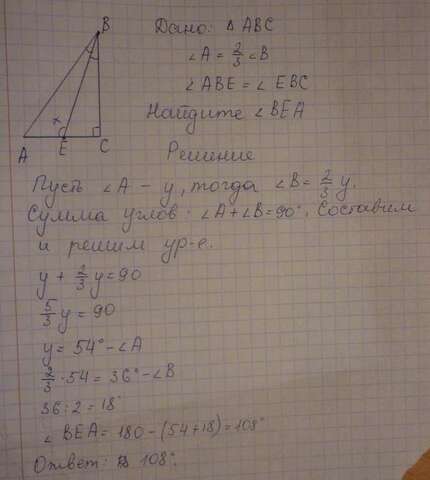 B
x
A
E
C
Дано: Δ ABC
∠A = 2/3 ∠B
∠ABE = ∠EBC
Найдите ∠BEA
Решение
Пусть ∠A - y, тогда ∠B = 2/3 y.
Сумма углов: ∠A+∠B=90°. Составим
и решим ур-е.
y + 2/3 y = 90
5/3 y = 90
y = 54° - ∠A
2/3 · 54 = 36° - ∠B
36 : 2 = 18°
∠BEA = 180 - (54+18) = 108°
Ответ: 108°.